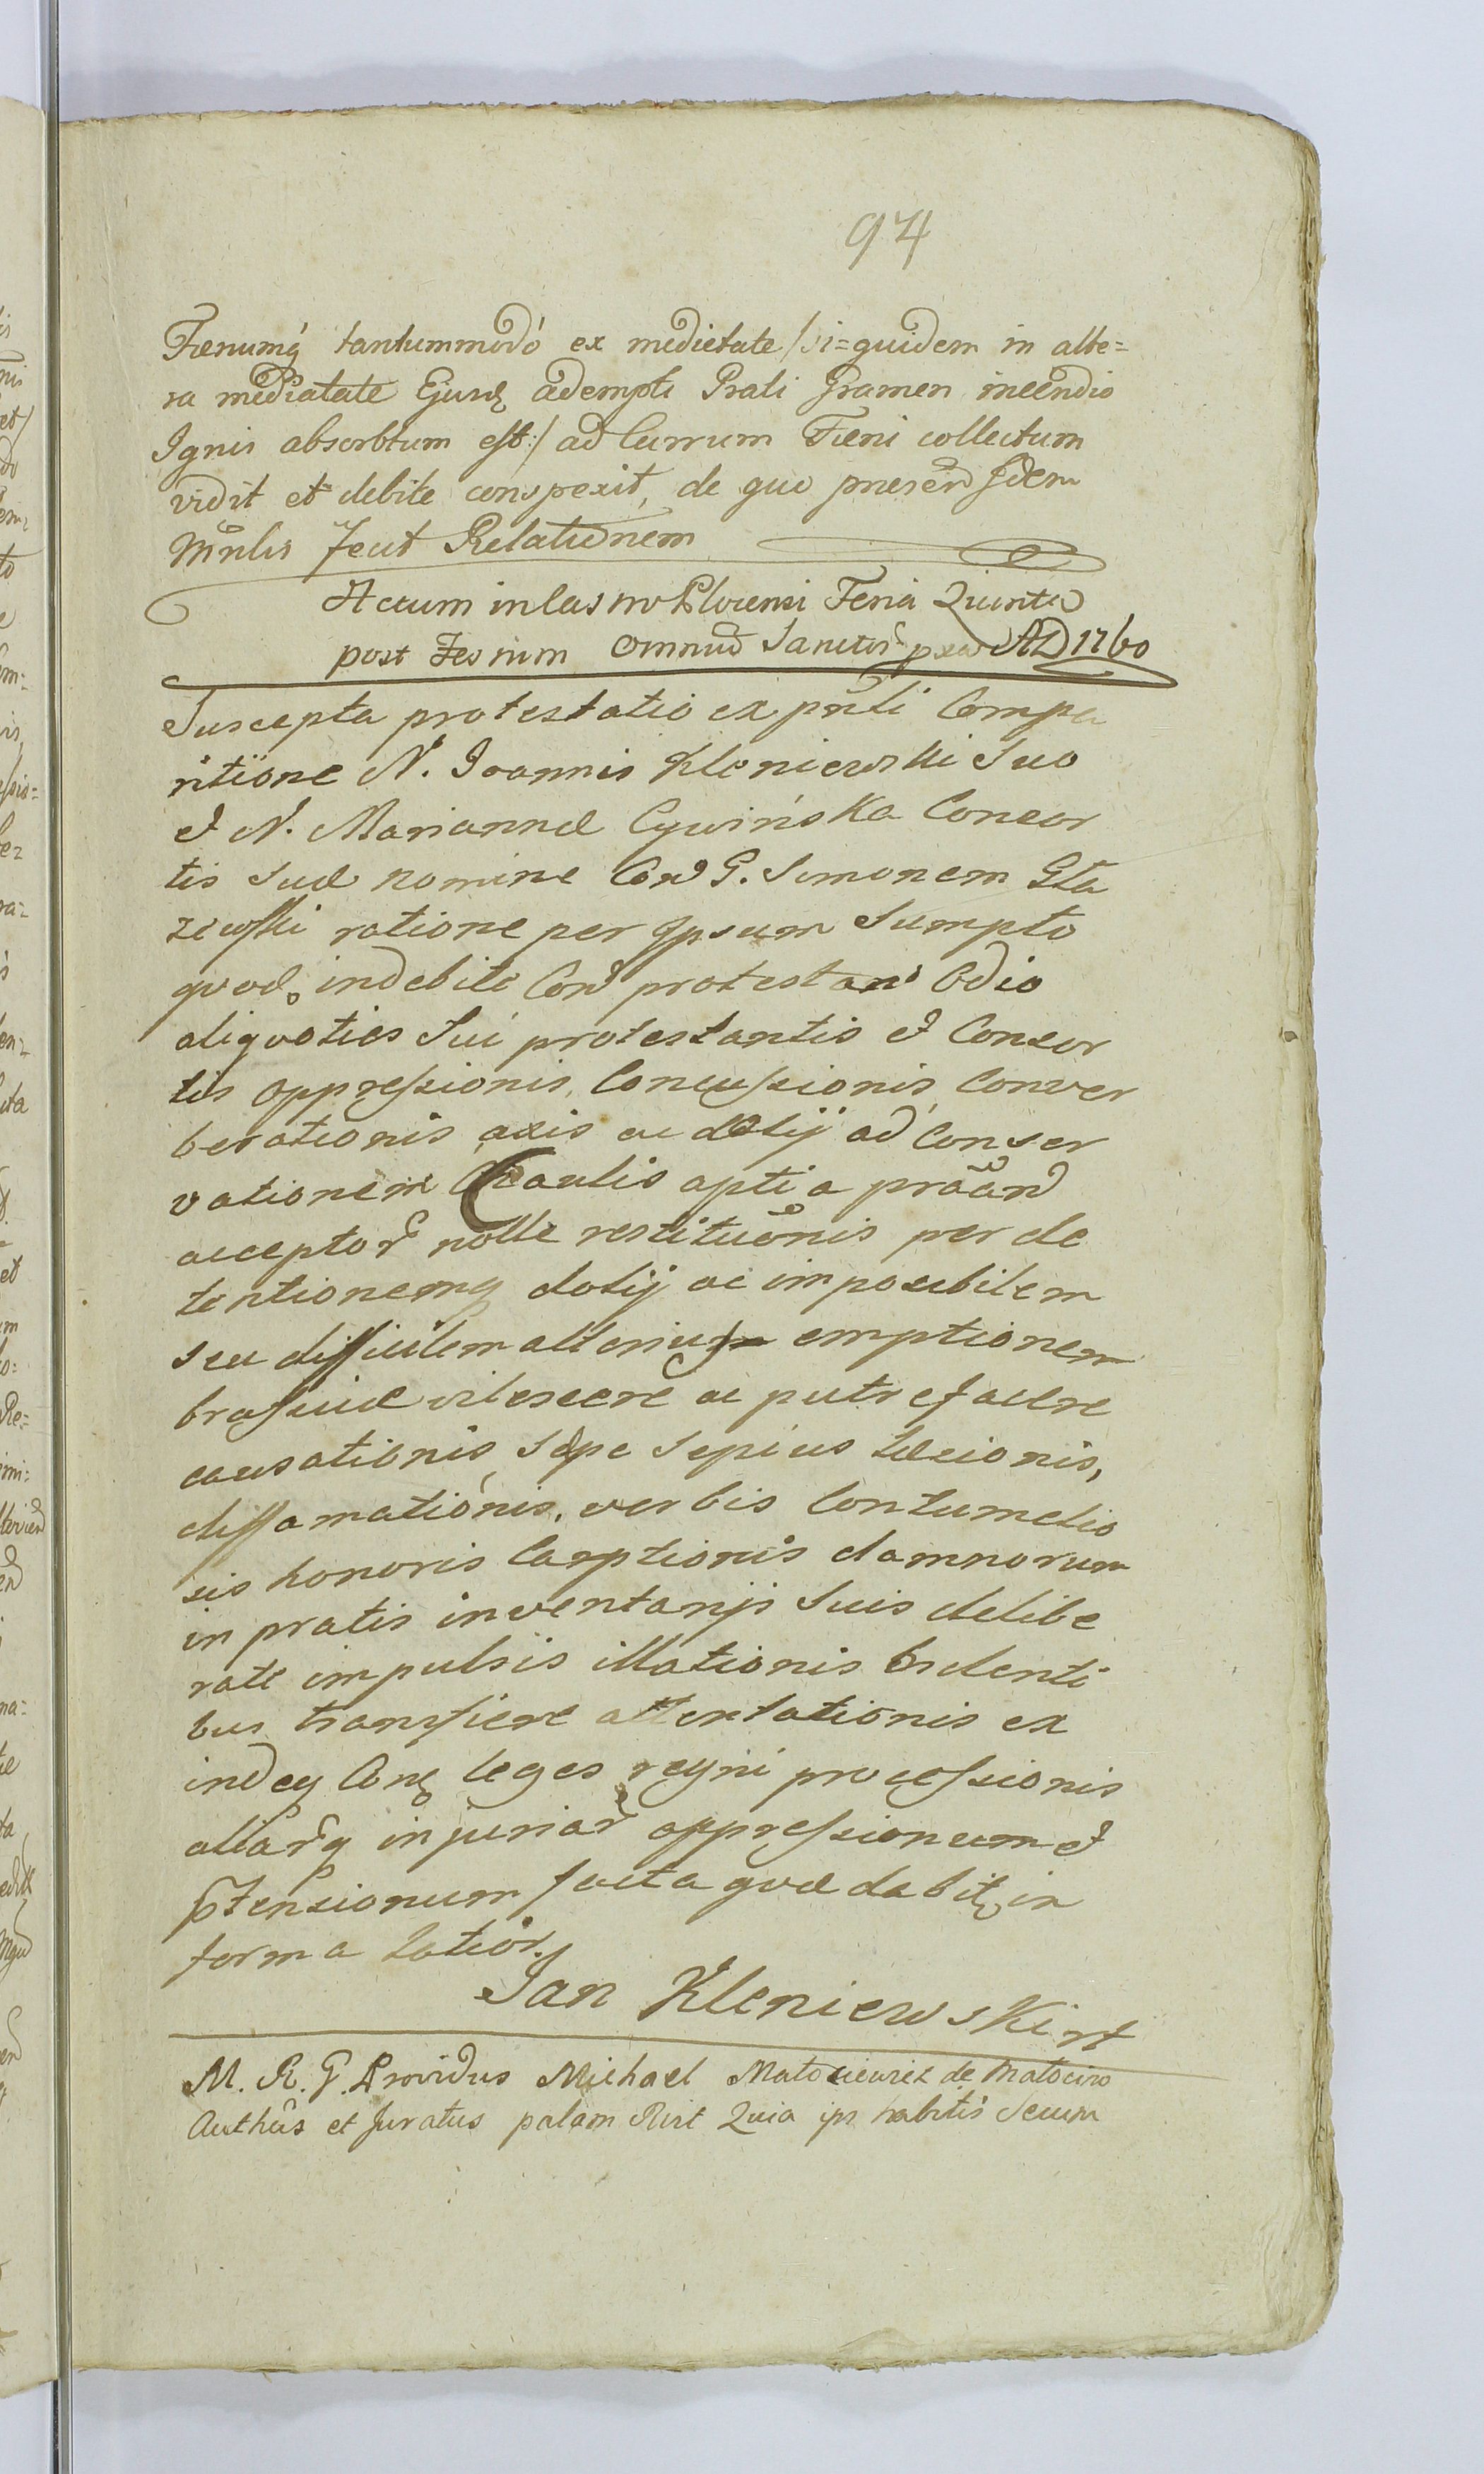 94
Fænumq́ tantummodó ex medietate /si=quidem in alte=
ra mediatate Ejusd adempti Prati Gramen incendio
Ignis absorbtum est:/ ad Currum Fæni collectum
vidit et debite conspexit, de quo præsen Idem
Mnlis Fecit Relationem
Actum in Castro Plocensi Feria Quinta
post Festum Omniu Sanctor pxa AD 1760
Suscepta protestatio ex pnli Compa
ritione N. Joannis Kleniewski Suo
et N. Mariannæ Cywińska Consor
tis Suæ nomine Con G. Simonem Gła
zewski ratione per Ipsum Sumpto
quod indebite Con protestan Odio
aliquoties Sui protestantis et Consor
tis oppressionis, Concussionis, Conver
berationis axis ac dolij ad Conser
vationem Caulis apti a protan
acceptor nolle restituonis per de
tentionemq dolij ac imposibilem
seu difficilem alterius emptionem
brassicæ vilescere ac putrefacere
causationis, sæpe sepius læsionis,
diffamationis, verbis Contumelio
sis honoris Carptionis damnorum
in pratis inventarijs Suis delibe
rate impulsis illationis denti
bus transfiere attentationis ex
indeq Con leges regni processionis
aliarq injuriar oppressionum et
ptensionum facta quæ dabit in
forma latior.
Jan Kleniewski
M. R. G. Providus Michael Matosiewicz de
Authus et Juratus palam Rcit Quia ips habitis Secum